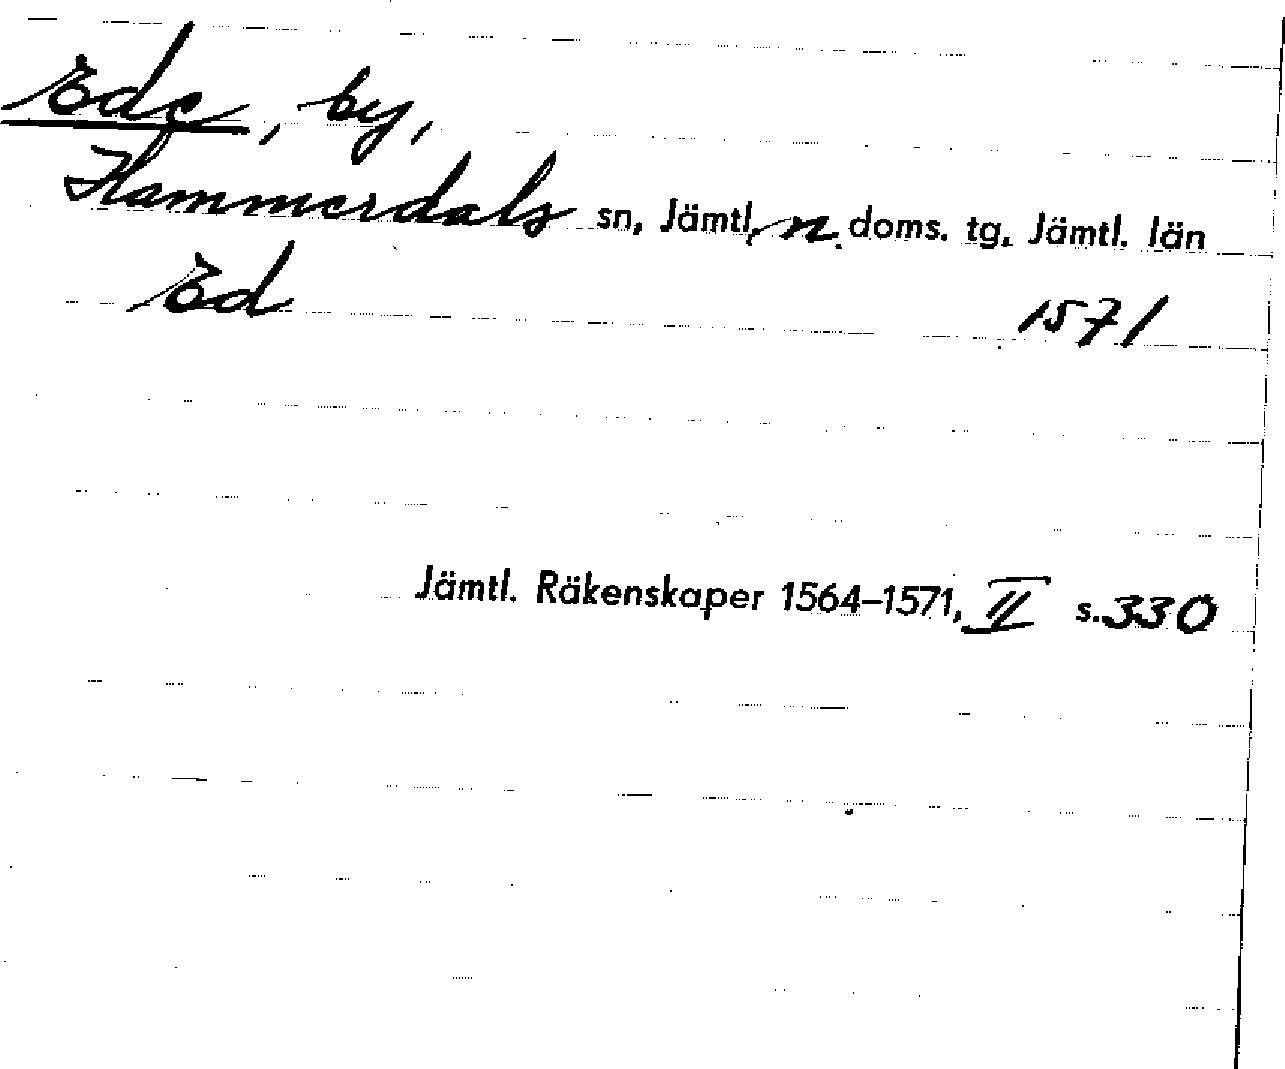 Ede, by,
Hammerdals sn, Jämtl. n. doms. tg, Jämtl. län
Ed 1571
Jämtl. Räkenskaper 1564–1571, II s. 330